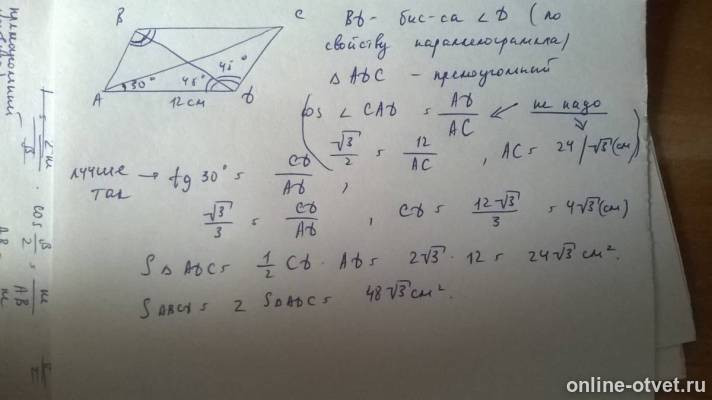 B
C
A
D
30°
45°
45°
12 см
BD - бис-са ∠D (по
свойству параллелограмма)
△ADC - прямоугольный
cos ∠CAD = AD/AC ← не надо
√3/2 = 12/AC , AC = 24/√3 (см)
лучше так → tg 30° = CD/AD ,
√3/3 = CD/AD , CD = 12√3/3 = 4√3 (см)
S△ADC = 1/2 CD · AD = 2√3 · 12 = 24√3 см².
SABCD = 2 S△ADC = 48√3 см².
прямоугольный
cos β/2 = m/AB
online-otvet.ru